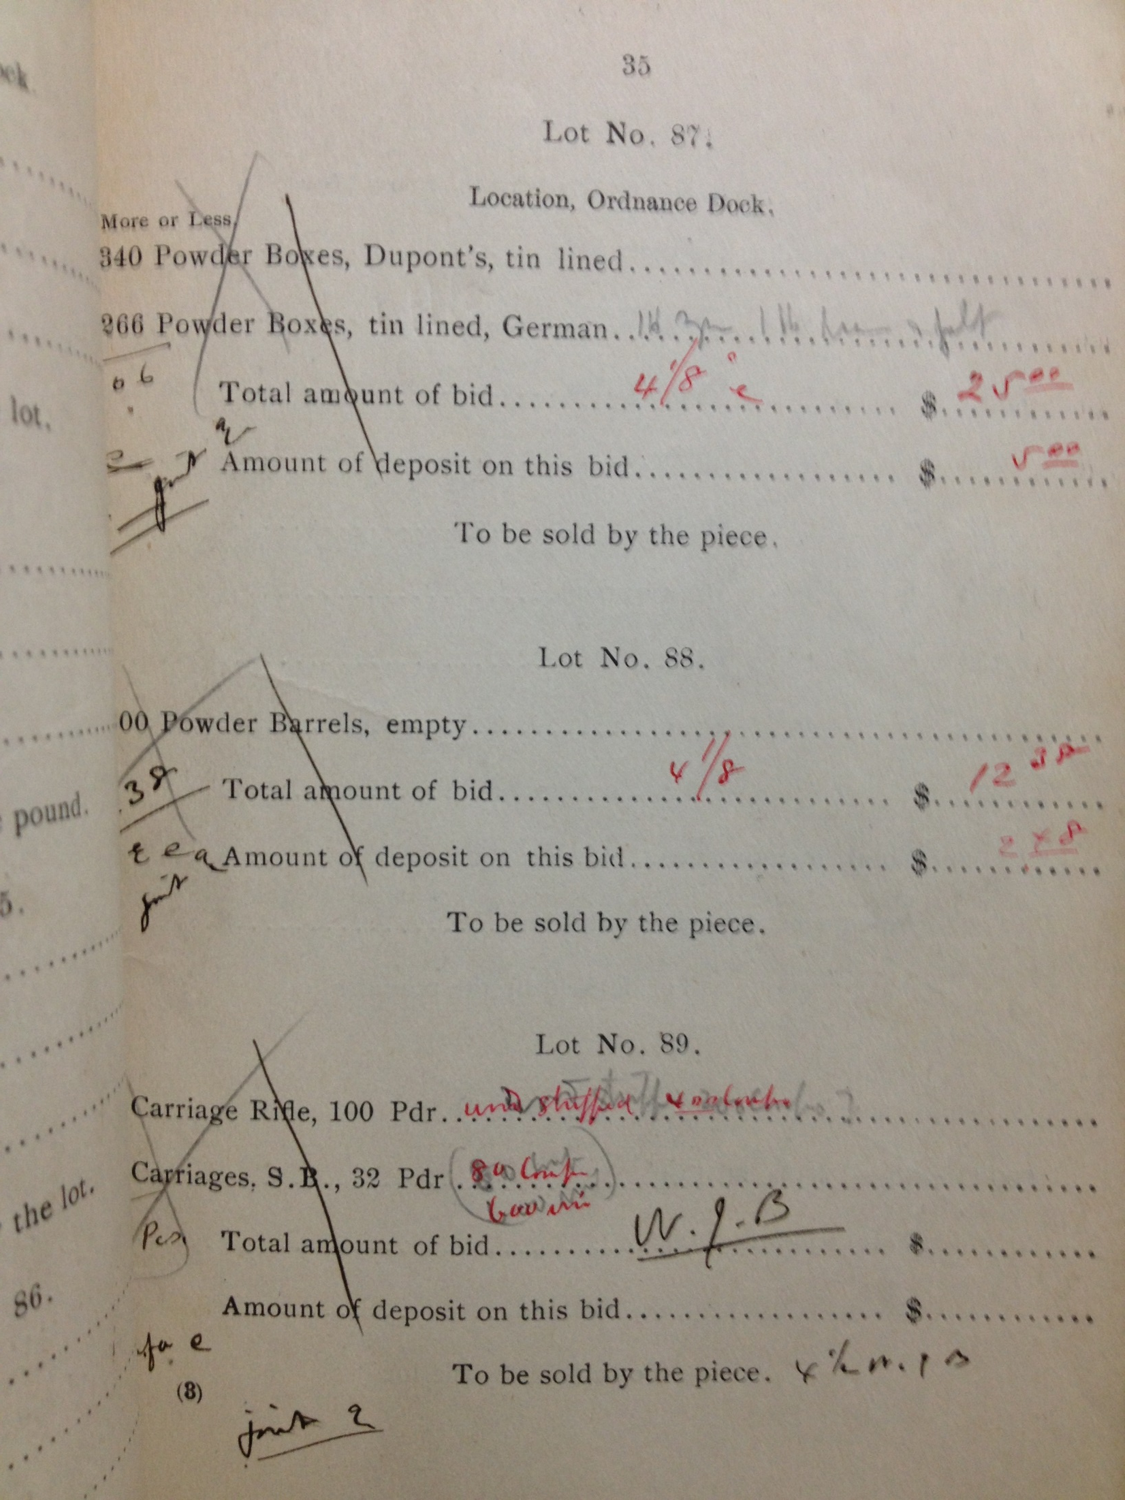 35
ock
Lot No. 87.
Location, Ordnance Dock.
More or Less.
340 Powder Boxes, Dupont's, tin lined
266 Powder Boxes, tin lined, German
06
Total amount of bid 4 1/8 c $ 25 00
lot.
Amount of deposit on this bid $ 5 00
To be sold by the piece.
Lot No. 88.
00 Powder Barrels, empty
38 Total amount of bid 4 1/8 $ 12 38
pound.
Amount of deposit on this bid $ 2 48
joint
5.
To be sold by the piece.
Lot No. 89.
Carriage Rifle, 100 Pdr
Carriages, S.B., 32 Pdr
the lot.
Total amount of bid W. J. B $
86.
Amount of deposit on this bid $
To be sold by the piece.
(8)
joint 2